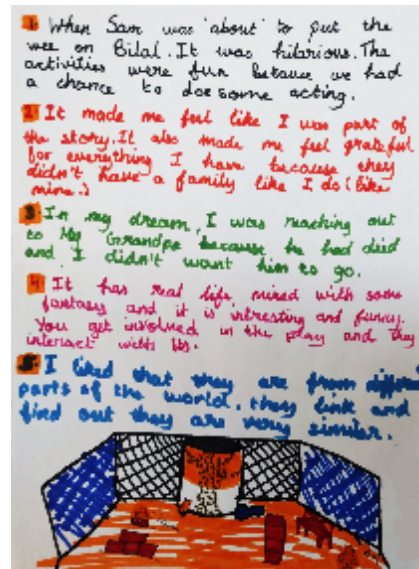 1. When Sam was 'about' to put the
wee on Bilal. It was hilarious. The
activities were fun because we had
a chance to doe some acting.
2. It made me feel like I was part of
the story. It also made me feel grateful
for everything I have because they
didn't have a family like I do (like
mine.)
3. In my dream, I was reaching out
to My Grandpa because he had died
and I didn't want him to go.
4. It has real life, mixed with some
fantasy and it is intresting and funny.
You get involved in the play and they
interact with Us.
5. I liked that they are from different
parts of the world, they link and
find out they are very similar.